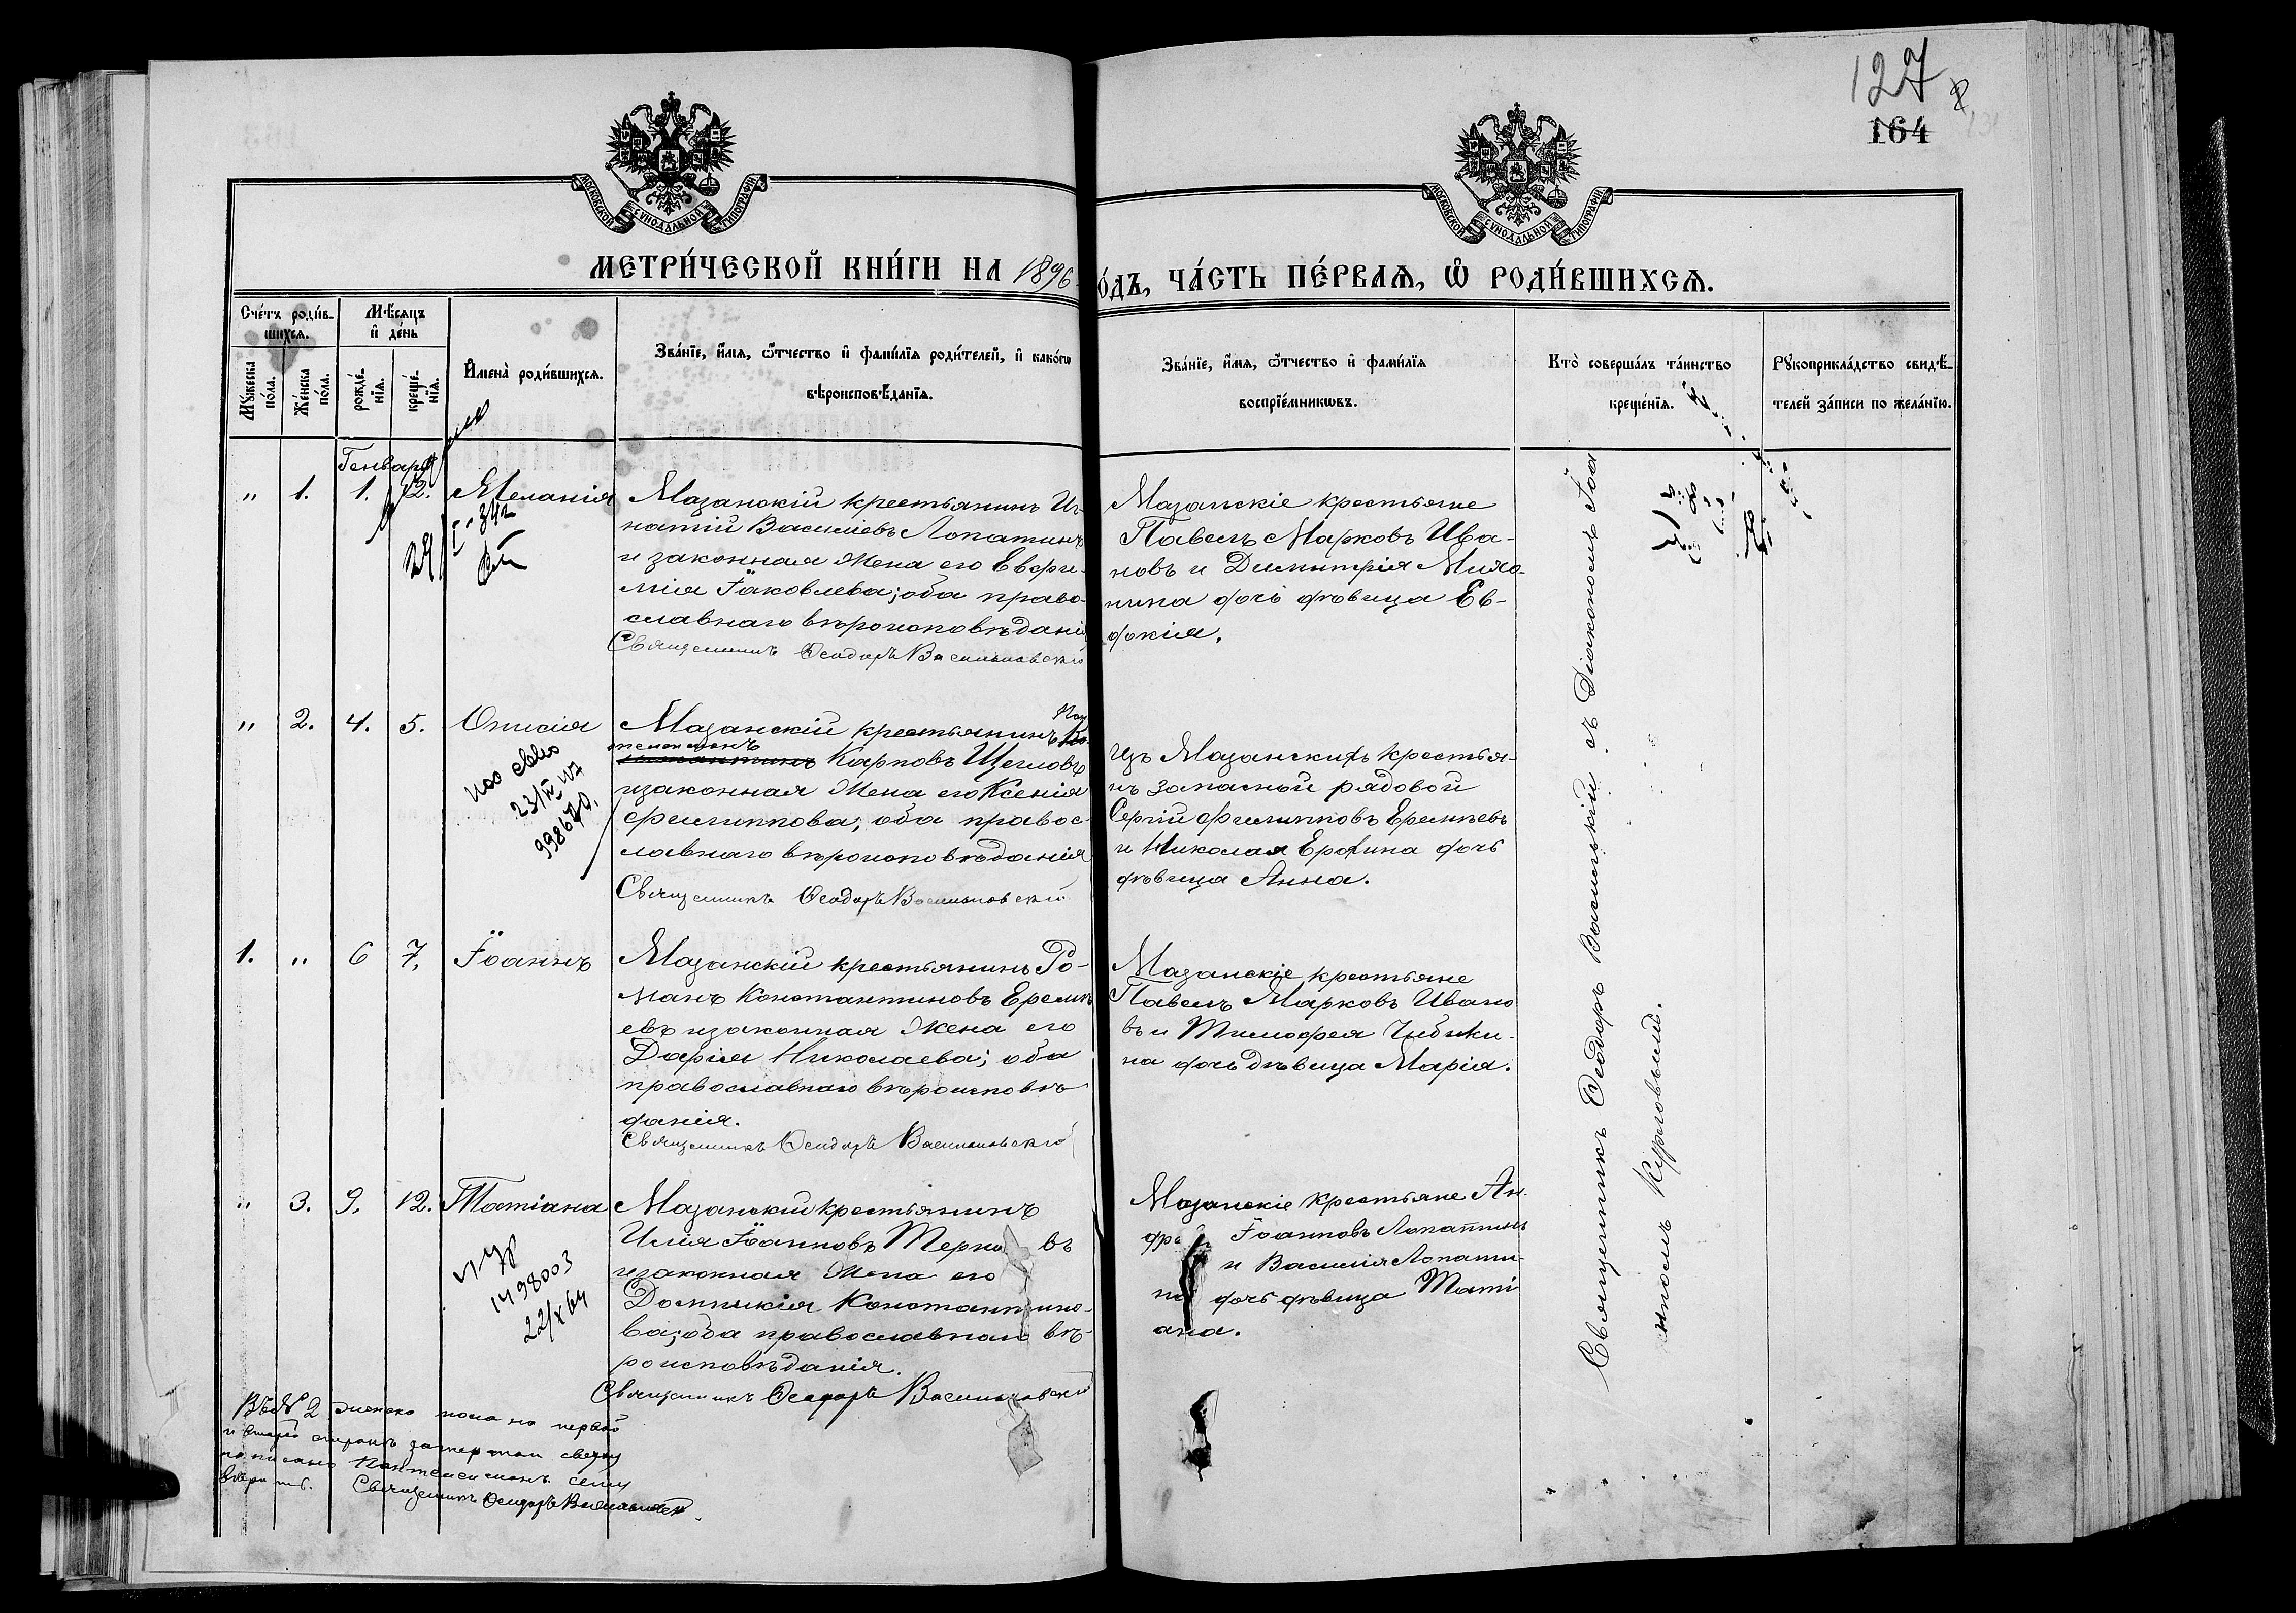 127
164
МОСКОВСКОЙ СУНОДАЛЬНОЙ ТИПОГРАФІИ
МОСКОВСКОЙ СУНОДАЛЬНОЙ ТИПОГРАФІИ
МЕТРИ́ЧЕСКОЙ КНИ́ГИ НА 1896
О́ДЪ, ЧА́СТЬ ПЕ́РВАѦ, Ѡ РОДИ́ВШИХСѦ.
Сче́тъ роди́в-
шихсѧ.
Мѣ́сѧцъ
и҆ де́нь
Мꙋ́жеска
по́ла.
Же́нска
по́ла.
рожде́-
нїѧ.
креще́-
нїѧ.
И҆мена̀ роди́вшихсѧ.
Зва́нїе, и҆́мѧ, ѻ҆́тчество и҆ фами́лїѧ роди́телей, и҆ како́гѡ
вѣроисповѣ́данїѧ.
Зва́нїе, и҆́мѧ, ѻ҆́тчество и҆ фами́лїѧ
воспрїе́мникѡвъ.
Кто̀ соверша́лъ та́инство
креще́нїѧ.
Рꙋкоприкла́дство свидѣ́-
телей за́писи по жела́нїю.
Генваря
" 1. 1. 2. Меланія
Мазанскій крестьянинъ Иг-
натій Василіевъ Лопатинъ
и законная жена его Евфи-
мія Іаковлева; оба право-
славнаго вѣроисповѣданія
Священникъ Ѳеодоръ Васильковскій
Мазанскіе крестьяне
Павелъ Марковъ Ива-
новъ и Димитрія Мило-
нина дочь дѣвица Ев-
докія.
" 2. 4. 5. Онисія
23/IV
998670.
Мазанскій крестьянинъ Пан
телеимонъ
Карповъ Щегловъ
и законная жена его Ксенія
Филиппова; оба правос-
лавнаго вѣроисповѣданія
Священникъ Ѳеодоръ Васильковскій
Изъ Мазанскихъ крестья-
нъ запасной рядовой
Сергій Филипповъ Еремѣевъ
и Николая Ерохина дочь
дѣвица Анна.
1. " 6 7. Іоаннъ
Мазанскій крестьянинъ Ро-
манъ Константиновъ Еремѣ
евъ и законная жена его
Дарія Николаева; оба
православнаго вѣроисповѣ
данія.
Священникъ Ѳеодоръ Васильковскій
Мазанскіе крестьяне
Павелъ Марковъ Ивано
въ и Тимофея Чибики-
на дочь дѣвица Марія.
" 3. 9. 12. Татіана
1498003
22/X 64
Мазанскій крестьянинъ
Илія Іоанновъ Терно въ
и законная жена его
Домникія Константино-
ва; оба православнаго вѣ-
роисповѣданія.
Священникъ Ѳеодоръ Васильковскій
Мазанскіе крестьяне Ан-
дре Іоанновъ Лопатинъ
и Василія Лопати-
на дочь дѣвица Таті
ана.
Священникъ Ѳеодоръ Васильковскій съ Діакономъ Іоа
нномъ
Въ № 2 женско пола на первой
и второй строкѣ зачеркнои сверху
написано Пантелеимонъ сему
вѣрить. Священникъ Ѳеодоръ Васильковскій